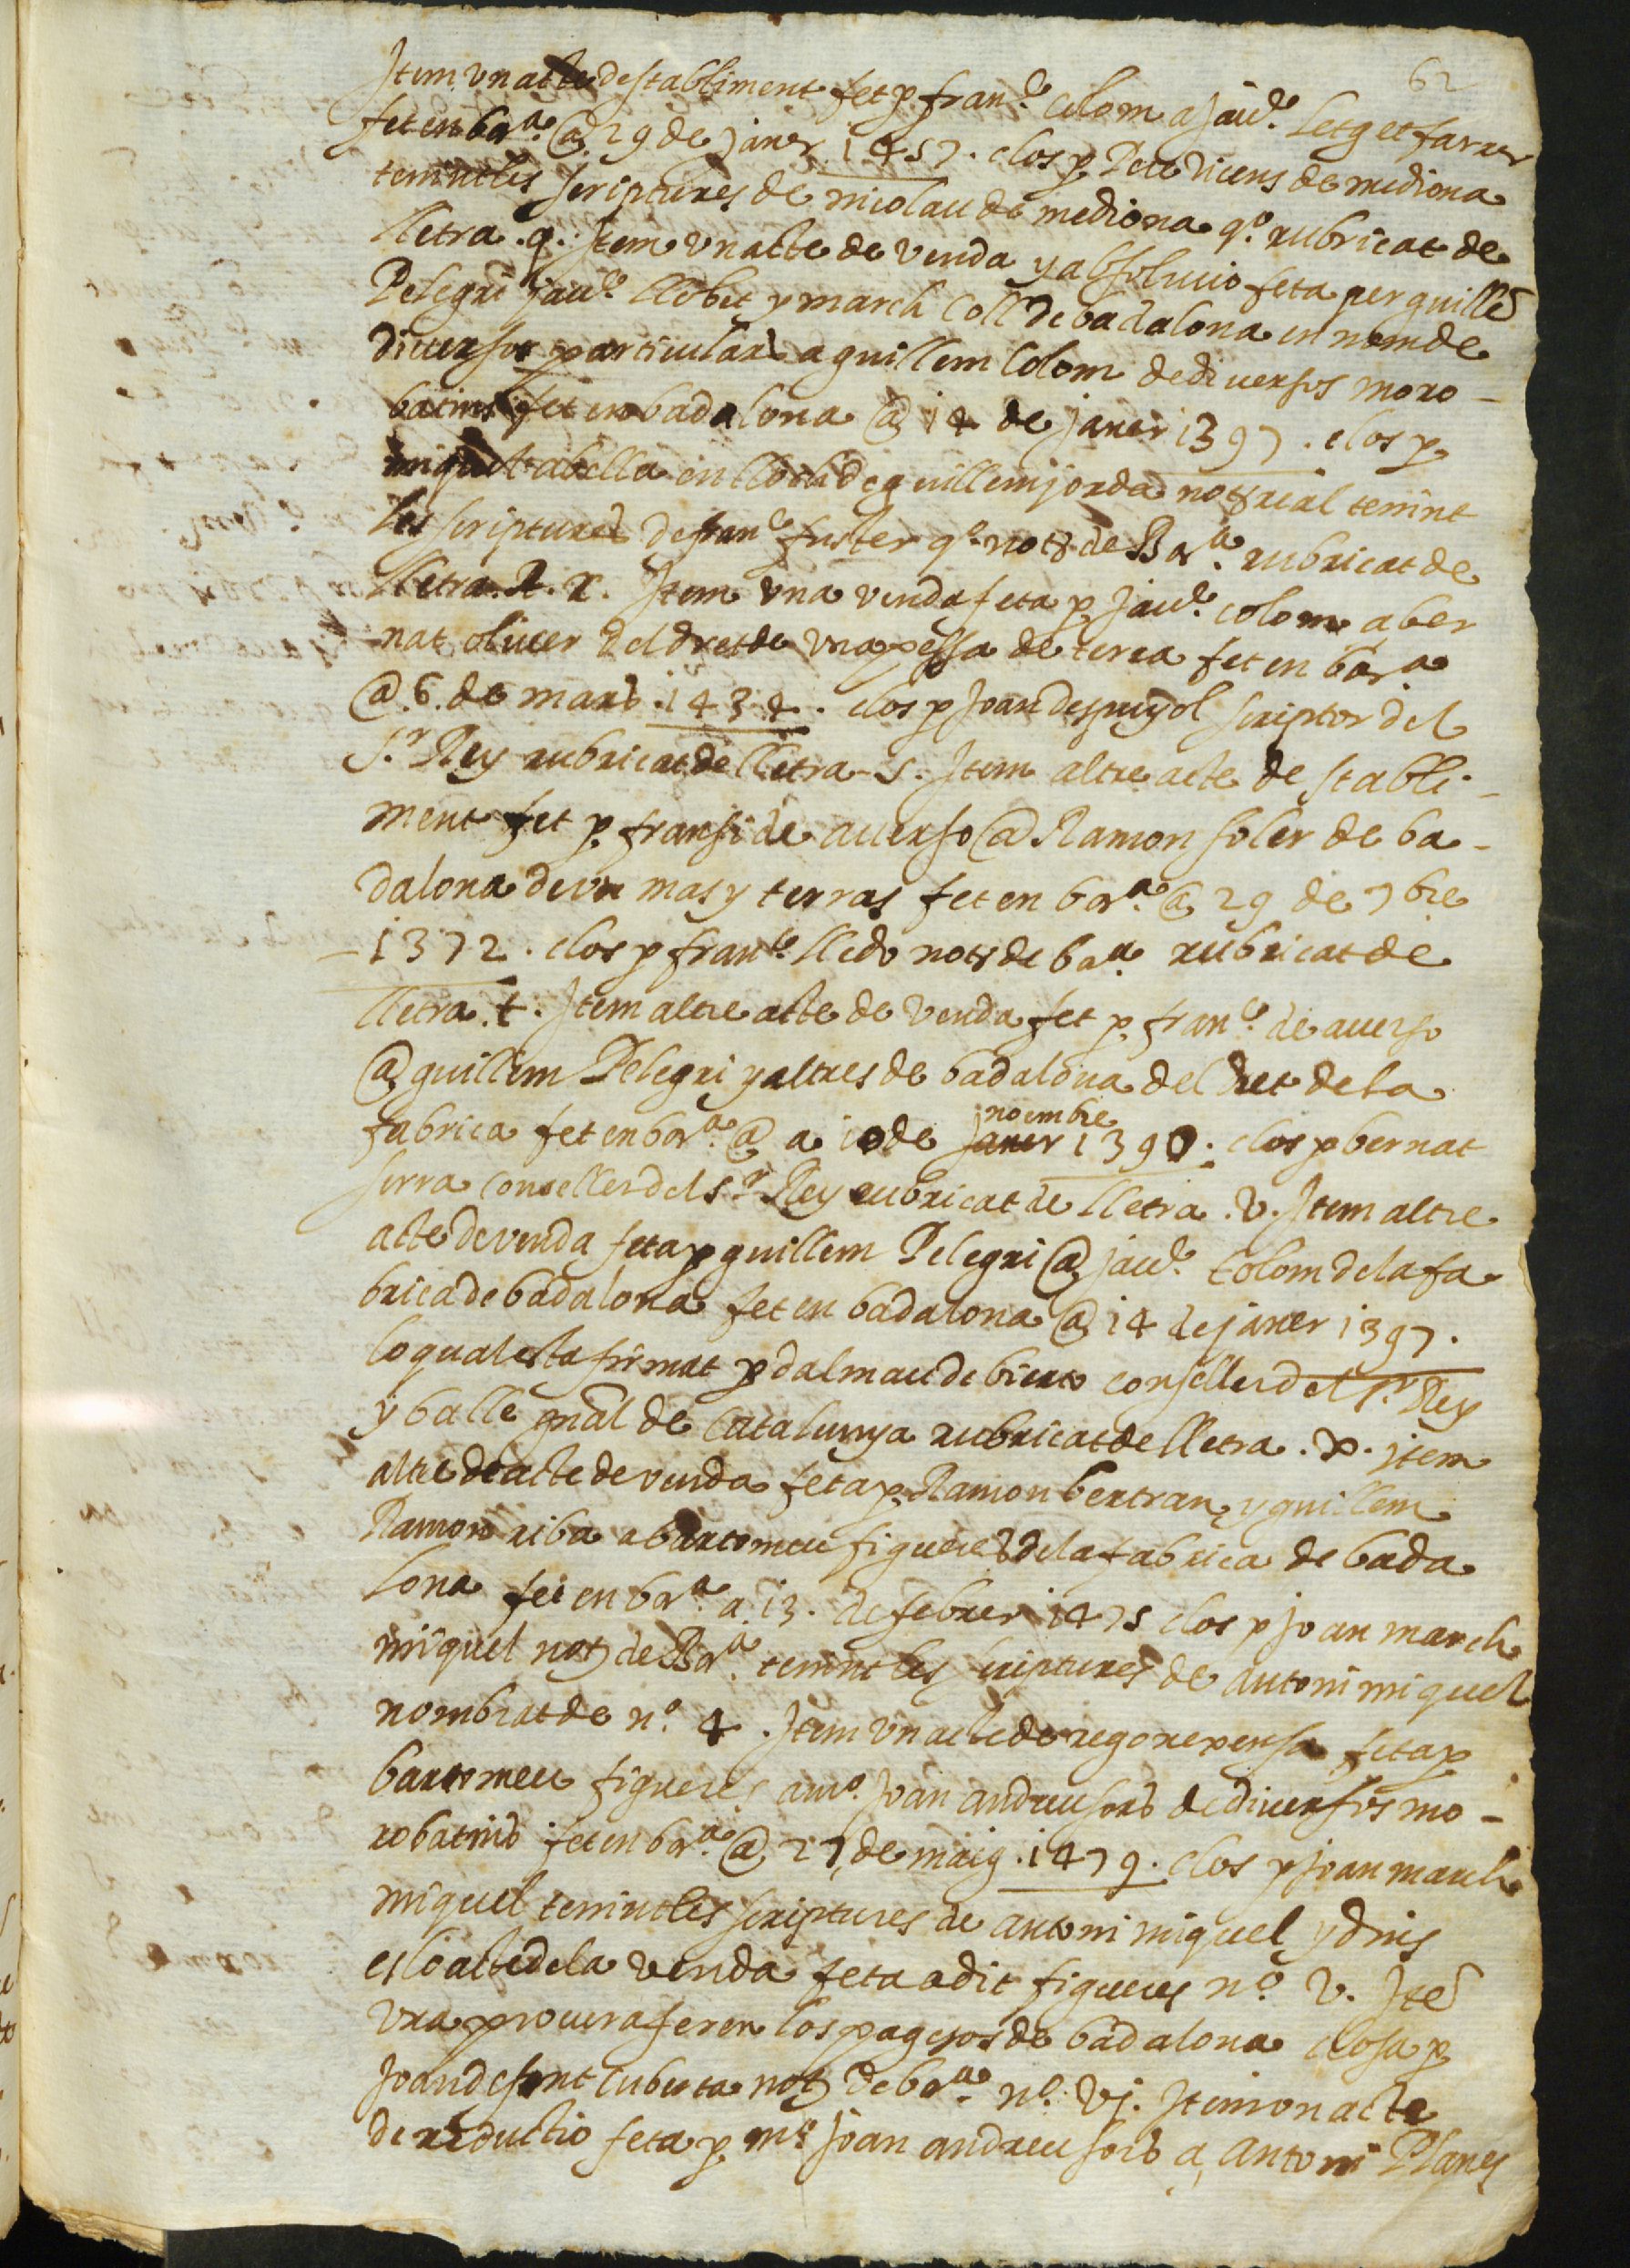 62
Item vn acte de stabliment fet p fran.ch colom a jau.e Letget farrer
fet en bar.a @ 29 de janer 1457. clos p Pere vicens de mediona
tenint les scriptures de nicolau de mediona q.o rubricat de
lletra .q. Item vn acte de venda y absolucio feta per guillē
Pelegri jau.e llobet y march Coll de badalona en nom de
diuersos particulars a guillem Colom de diuersos moro-
batins fet en badalona @ 14 de janer 1397. clos p
miquel abella en lloch de guillem jorda not real tenint
les scriptures de fran.ch fuster q.o not de Bar.a rubricat de
lletra. R. Item vna venda feta p jau.e colom a ber
nat oliuer del dret de vna pessa de terra fet en bar.a
@ 6. de mars .1434. clos p Joan despujol scriptor del
S.r Rey rubricat de lletra .s. Item altre acte de stabli-
ment fet p fransi de auerso @ Ramon soler de ba-
dalona de vn mas y terras fet en bar.a @ 29 de 7bre
1372. clos p fran.ch lledo not de ba.a rubricat de
lletra .t. Item altre acte de venda fet p fran.ch de auerso
@ guillem Pelegri y altres de badalona del dret de la
fabrica fet en bar.a @ a 10 de janer noembre 1390. clos p bernat
serra conseller del s.r Rey rubricat de lletra .v. Item altre
acte de venda feta p guillem Pelegri @ jau.e Colom de la fa
brica de badalona fet en badalona @ 14 de janer 1397.
lo qual esta firmat p dalmau de biert conseller del s.r Rey
y balle gnāl de Catalunya rubricat de lletra .x. Item
altre de acte de venda feta p Ramon bertran y guillem
Ramon riba a bartomeu figueres de la fabrica de bada
lona fet en bar.a a 13. de febrer 1475 clos p joan march
miquel not de Bar.a tenint les scriptures de antoni miquel
nombrat de n.o 4. Item vn acte de regonexensa feta p
bartomeu figueres a m.o Joan andreu sors de diuersos mo-
robatins fet en bar.a @ 27 de maig .1479. clos p joan march
miquel tenint les scriptures de antoni miquel y dins
es lo acte de la venda feta a dit figueres n.o v. Itē
vna procura feren los pagesos de badalona closa p
Joan de font cuberta not de bar.a n.o vj. Item vn acte
de reductio feta p m.o Joan andreu sors a antoni Planes